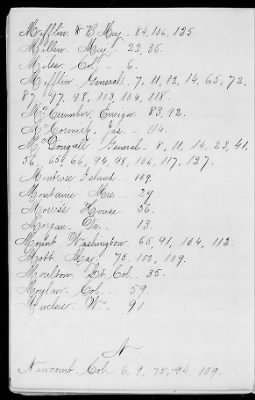 Mifflin & B. Maj. 84, 106, 125.
Millen Maj. 22, 35.
Miles Col. 6.
Mifflin General. 7, 11, 12, 14, 65, 72,
87, 97, 98, 113, 104, 118.
McCumber, Ensign. 83, 92.
McCormick, Jas. 114.
McDougall General. 8, 11, 14, 23, 41,
56, 65, 66, 94, 98, 106, 117, 127.
Montresor Island. 109.
Montaine Mrs. 29
Morris House 56.
Morgan, Dr. 13.
Mount Washington. 66, 91, 104, 112.
Mott, Maj. 75, 102, 109.
Moulton Lt. Col. 35.
Moylan, Col. 59
W. 91
N
Newcomb Col. 6, 9, 75, 109.